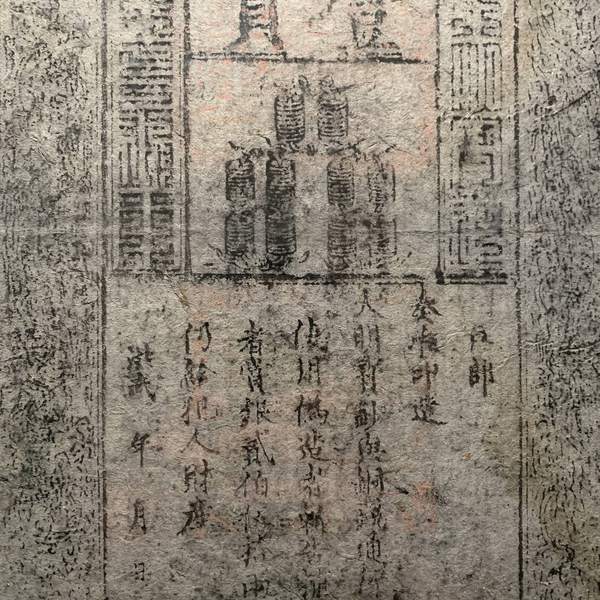 壹貫
戶部
奏准印造
大明寶鈔與銅錢通行
使用偽造者斬告捕
者賞銀貳伯伍拾兩
仍給犯人財產
洪武 年 月 日